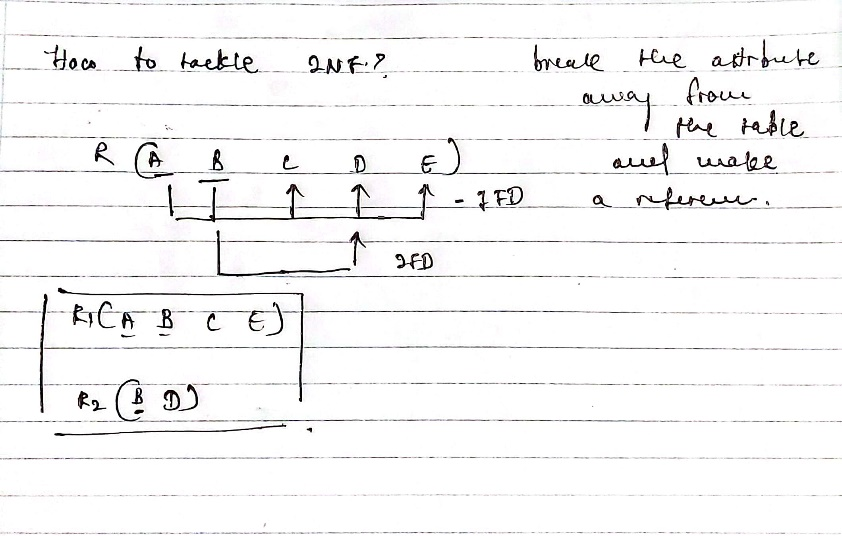 How to tackle 2NF.?
break the attribute
away from
the table
and make
a reference.
R (A B C D E)
- 1FD
2FD
R1(A B C E)
R2 (B D)